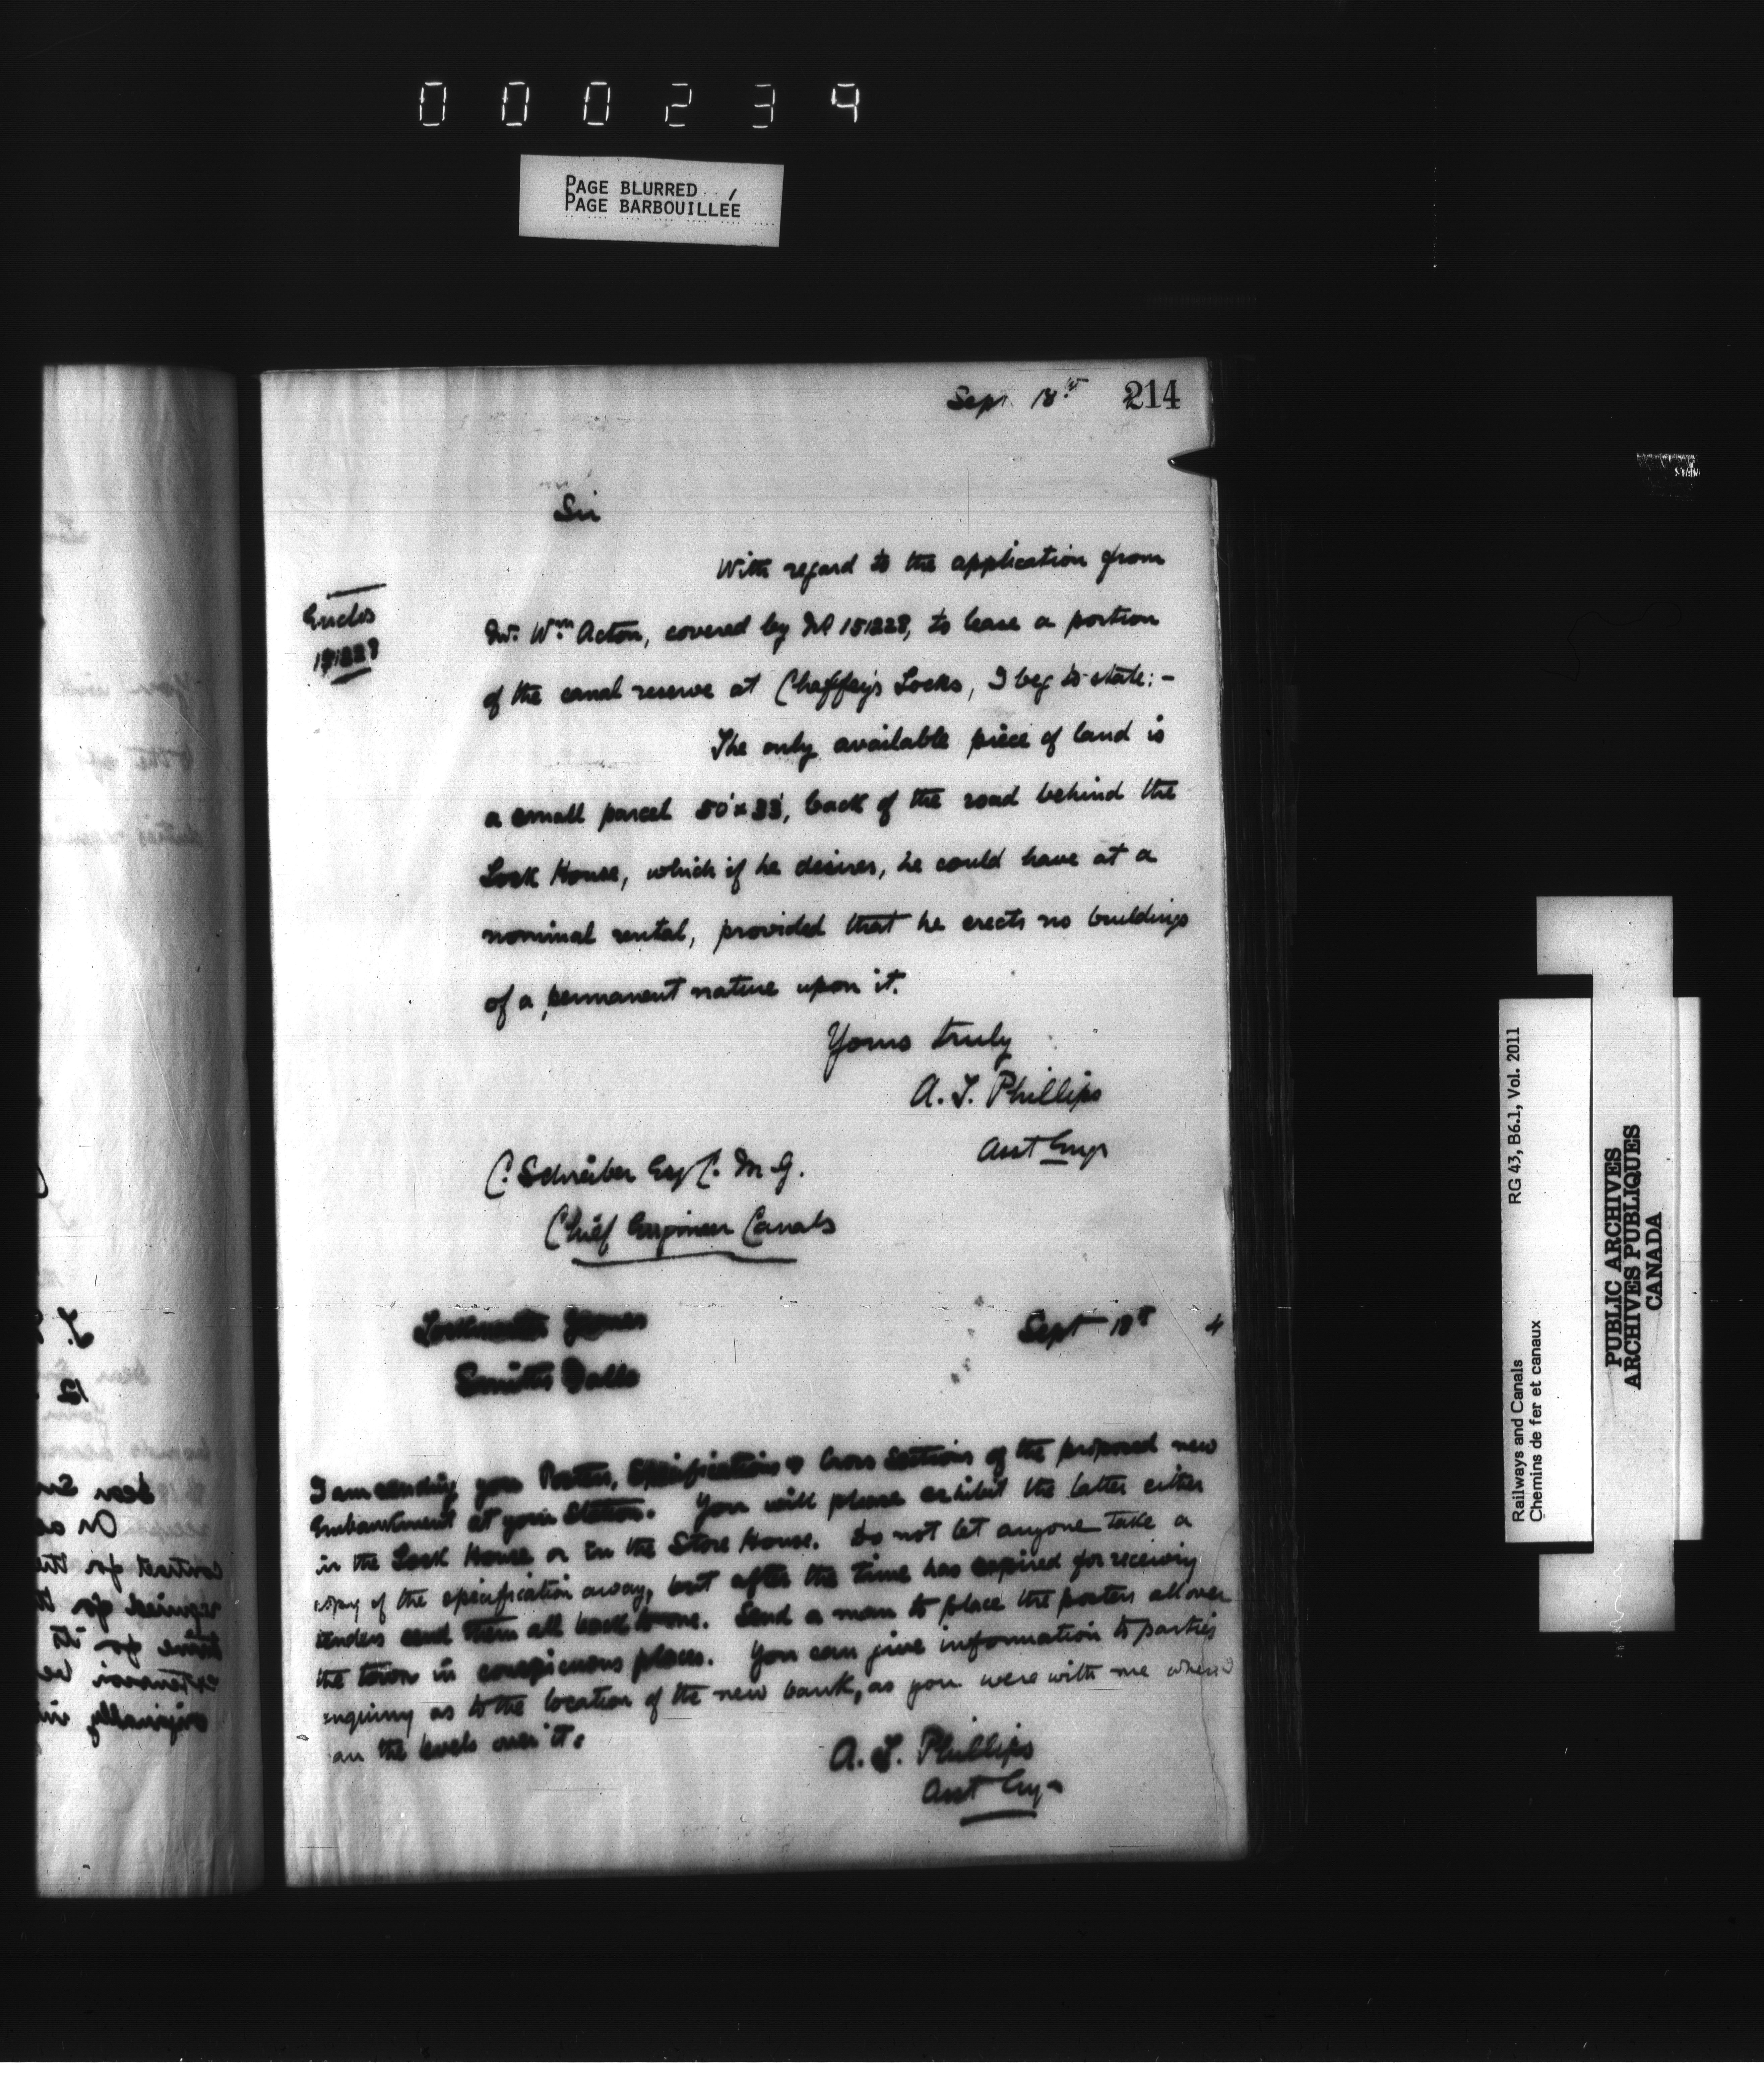 000234
PAGE BLURRED
PAGE BARBOUILLÉE
Sept. 18th 214
Sir
With regard to the application from
Enclos
Mr. Wm Acton, covered by No 151228, to lease a portion
151228
of the canal reserve at Chaffey's Locks, I beg to state:-
The only available piece of land is
a small parcel 50' x 33', back of the road behind the
Lock House, which if he desires, he could have at a
nominal rental, provided that he erects no buildings
of a permanent nature upon it.
Yours truly
A. T. Phillips
Asst Engr
C. Schreiber Esq C.M.G.
Chief Engineer Canals
Lockmaster Jones Sept 18th 4
Smiths Falls
I am sending you Posters, Specifications & Cross Sections of the proposed new
Embankment at your Station. You will please exhibit the latter either
in the Lock House or in the Store House. Do not let anyone take a
copy of the specification away, but after the time has expired for receiving
tenders send them all back to me. Send a man to place the posters all over
the town in conspicuous places. You can give information to parties
enquiring as to the location of the new bank, as you were with me when I
ran the levels over it.
A. T. Phillips
Asst Engr
Railways and Canals RG 43, B6.1, Vol. 2011
Chemins de fer et canaux
PUBLIC ARCHIVES
ARCHIVES PUBLIQUES
CANADA